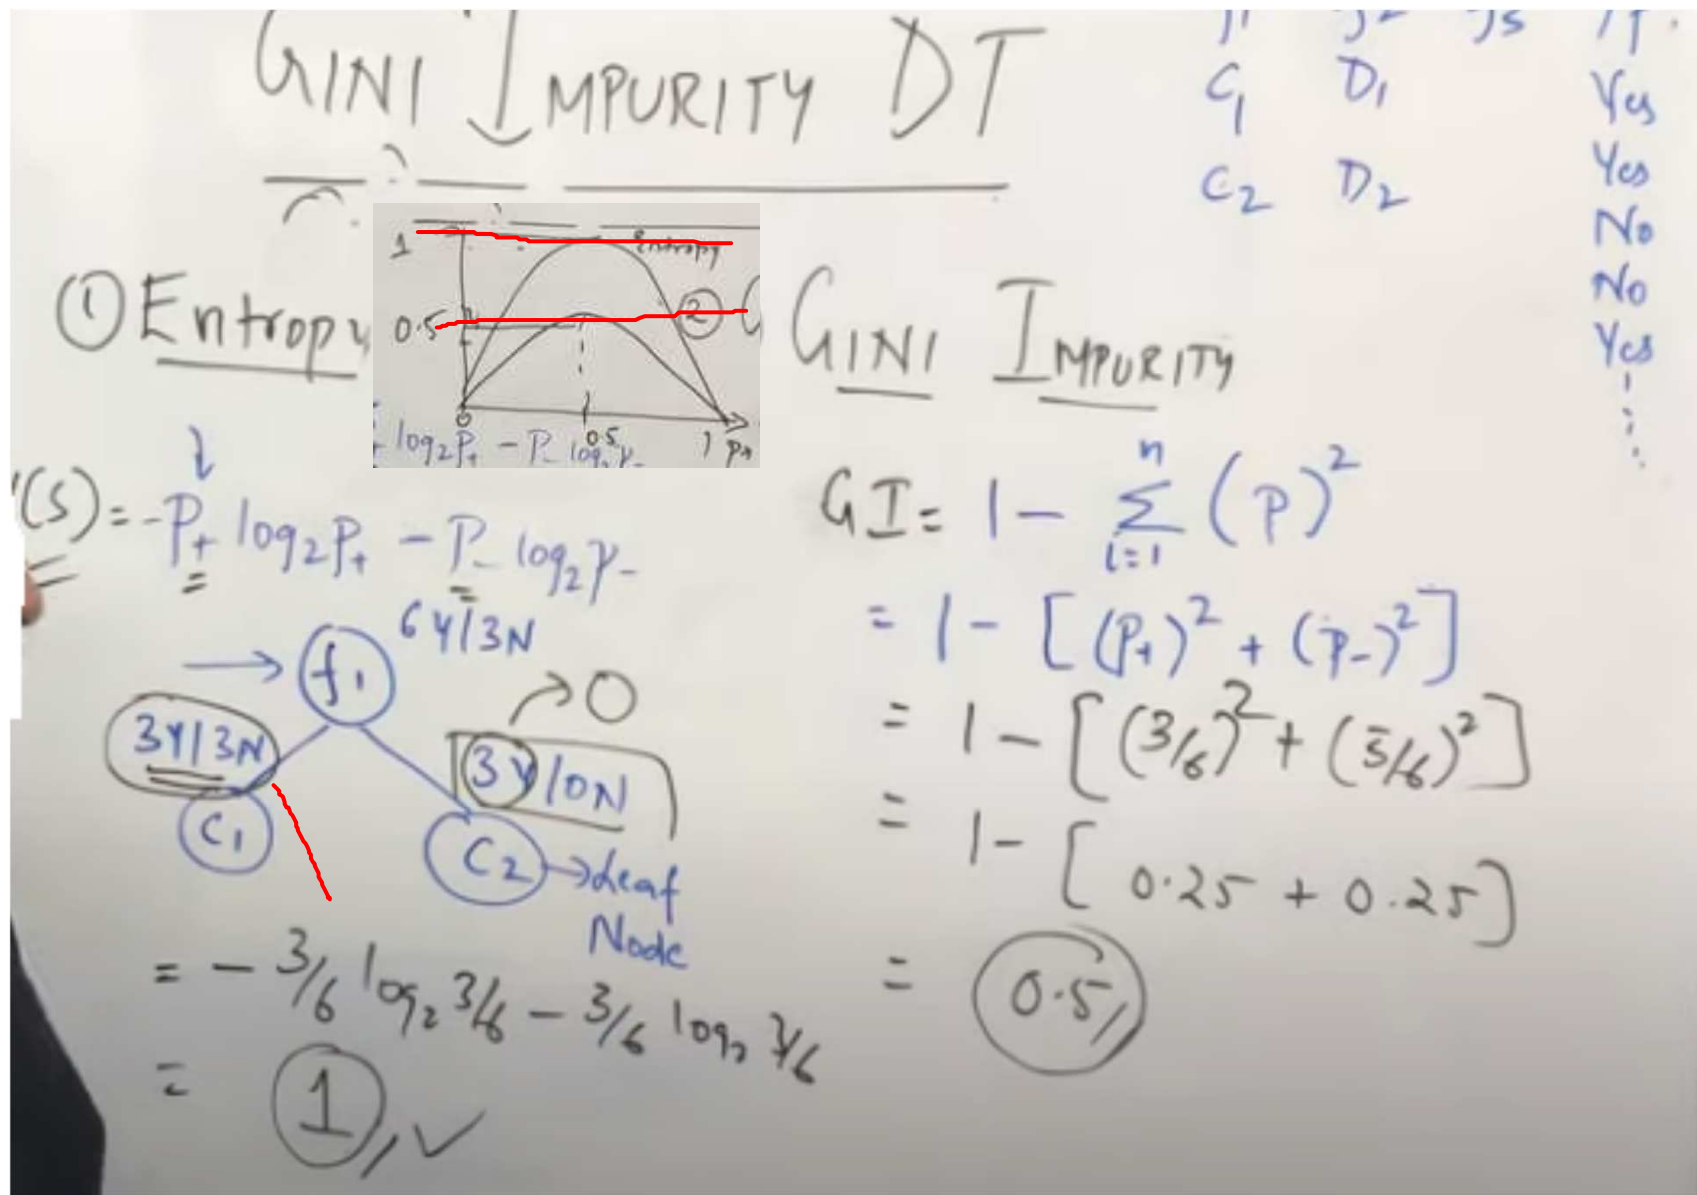 GINI IMPURITY DT
C1 D1 Yes
C2 D2 Yes
No
No
Yes
① Entropy
1 Entropy
0.5 ②
0 0.5 1
log2P+ - P- log2P-
GINI IMPURITY
(S) = -P+ log2P+ - P- log2P-
6Y/3N
f1
3Y/3N
C1
3Y/0N → 0
C2 → Leaf
Node
= - 3/6 log2 3/6 - 3/6 log2 3/6
= 1, ✓
GI = 1 - n Σ i=1 (P)²
= 1 - [(P+)² + (P-)²]
= 1 - [(3/6)² + (3/6)²]
= 1 - [0.25 + 0.25]
= 0.5